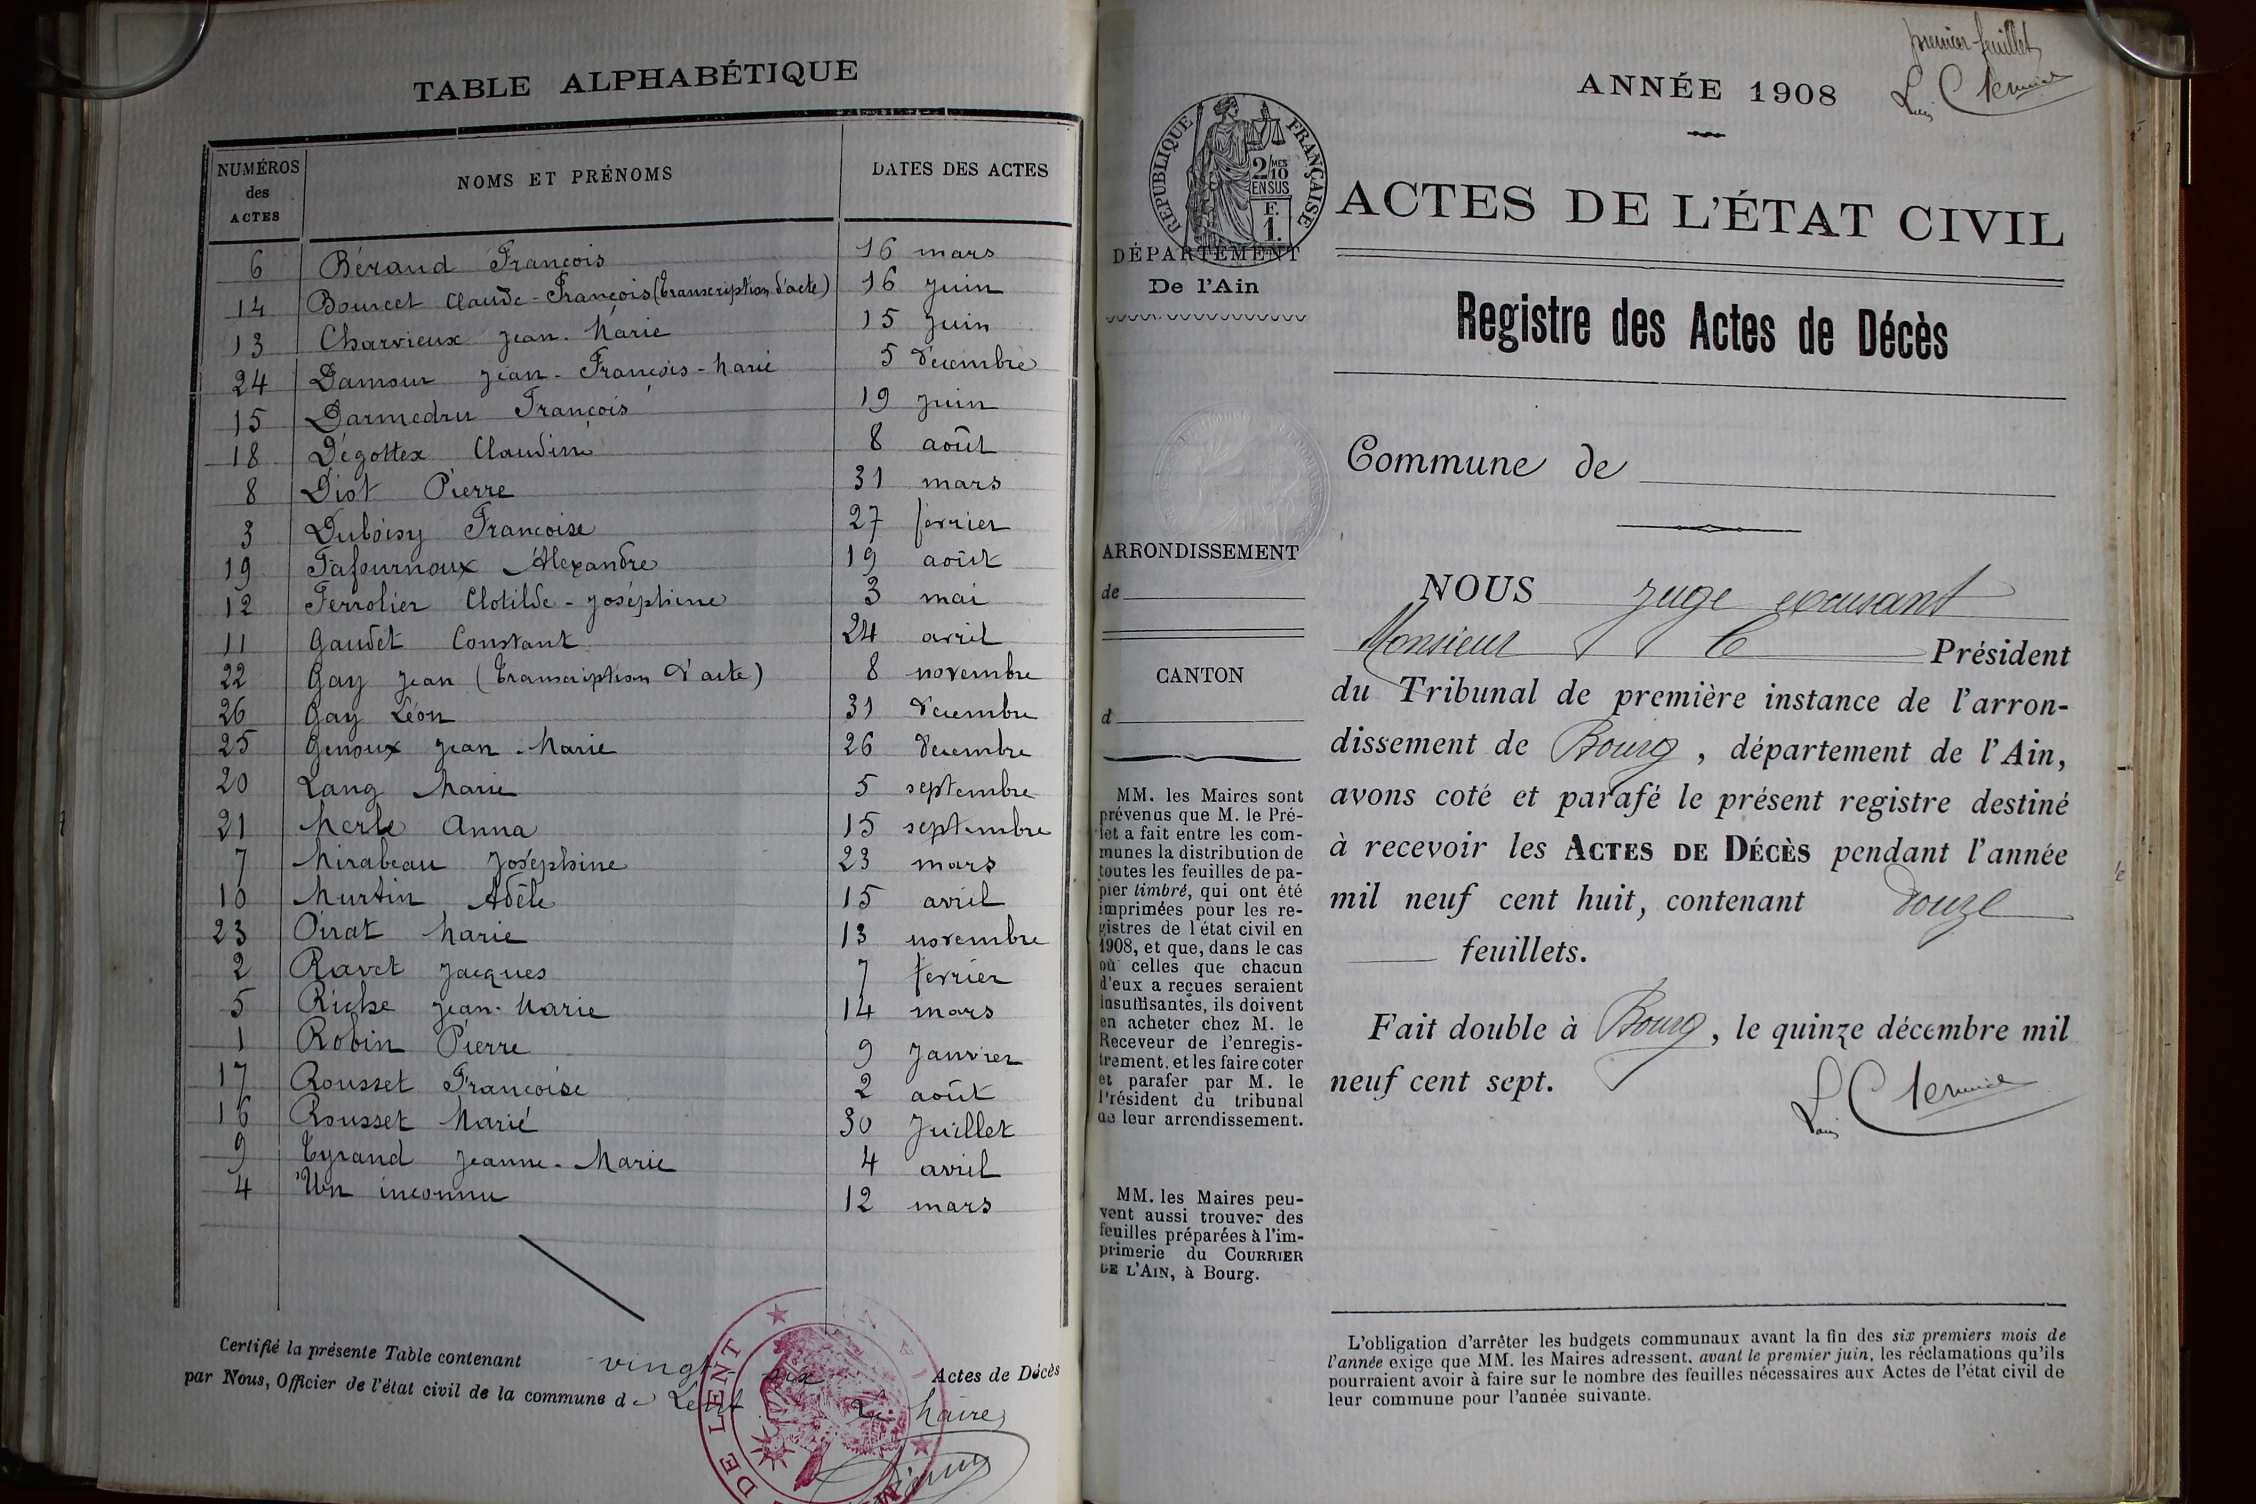 TABLE ALPHABÉTIQUE
NUMÉROS des ACTES NOMS ET PRÉNOMS DATES DES ACTES
6 Béraud François 16 mars
14 Bourcet Claude-François (transcription d'acte) 16 juin
13 Charvieux Jean-Marie 15 juin
24 Damour Jean-François-Marie 5 décembre
15 Darmedru François 19 juin
18 Dégottex Claudine 8 août
8 Diot Pierre 31 mars
3 Duboisy Françoise 27 février
19 Fafournoux Alexandre 19 août
12 Ferrolier Clotilde-Joséphine 3 mai
11 Gaudet Constant 24 avril
22 Gay Jean (transcription d'acte) 8 novembre
26 Gay Léon 31 décembre
25 Genoux Jean-Marie 26 décembre
20 Lang Marie 5 septembre
21 Merle Anna 15 septembre
7 Mirabeau Joséphine 23 mars
10 Murtin Adèle 15 avril
23 Oirat Marie 13 novembre
2 Ravet Jacques 7 février
5 Riche Jean-Marie 14 mars
1 Robin Pierre 9 Janvier
17 Rousset Françoise 2 août
16 Rousset Marie 30 Juillet
9 Tyrand Jeanne-Marie 4 avril
4 Un inconnu 12 mars
Certifié la présente Table contenant vingt six Actes de Décès
par Nous, Officier de l'état civil de la commune de Lent
Le Maire,
DE LENT
premier feuillet
ANNÉE 1908
RÉPUBLIQUE FRANÇAISE
2/10 MES
EN SUS
F.
1.
ACTES DE L'ÉTAT CIVIL
DÉPARTEMENT
De l'Ain
Registre des Actes de Décès
Commune de
ARRONDISSEMENT
de
CANTON
d
MM. les Maires sont
prévenus que M. le Pré-
fet a fait entre les com-
munes la distribution de
toutes les feuilles de pa-
pier timbré, qui ont été
imprimées pour les re-
gistres de l'état civil en
1908, et que, dans le cas
où celles que chacun
d'eux a reçues seraient
insuffisantes, ils doivent
en acheter chez M. le
Receveur de l'enregis-
trement, et les faire coter
et parafer par M. le
Président du tribunal
de leur arrondissement.
MM. les Maires peu-
vent aussi trouver des
feuilles préparées à l'im-
primerie du COURRIER
DE L'AIN, à Bourg.
NOUS juge excusant
Monsieur le Président
du Tribunal de première instance de l'arron-
dissement de Bourg, département de l'Ain,
avons coté et parafé le présent registre destiné
à recevoir les ACTES DE DÉCÈS pendant l'année
mil neuf cent huit, contenant douze
feuillets.
Fait double à Bourg, le quinze décembre mil
neuf cent sept.
L'obligation d'arrêter les budgets communaux avant la fin des six premiers mois de
l'année exige que MM. les Maires adressent, avant le premier juin, les réclamations qu'ils
pourraient avoir à faire sur le nombre des feuilles nécessaires aux Actes de l'état civil de
leur commune pour l'année suivante.